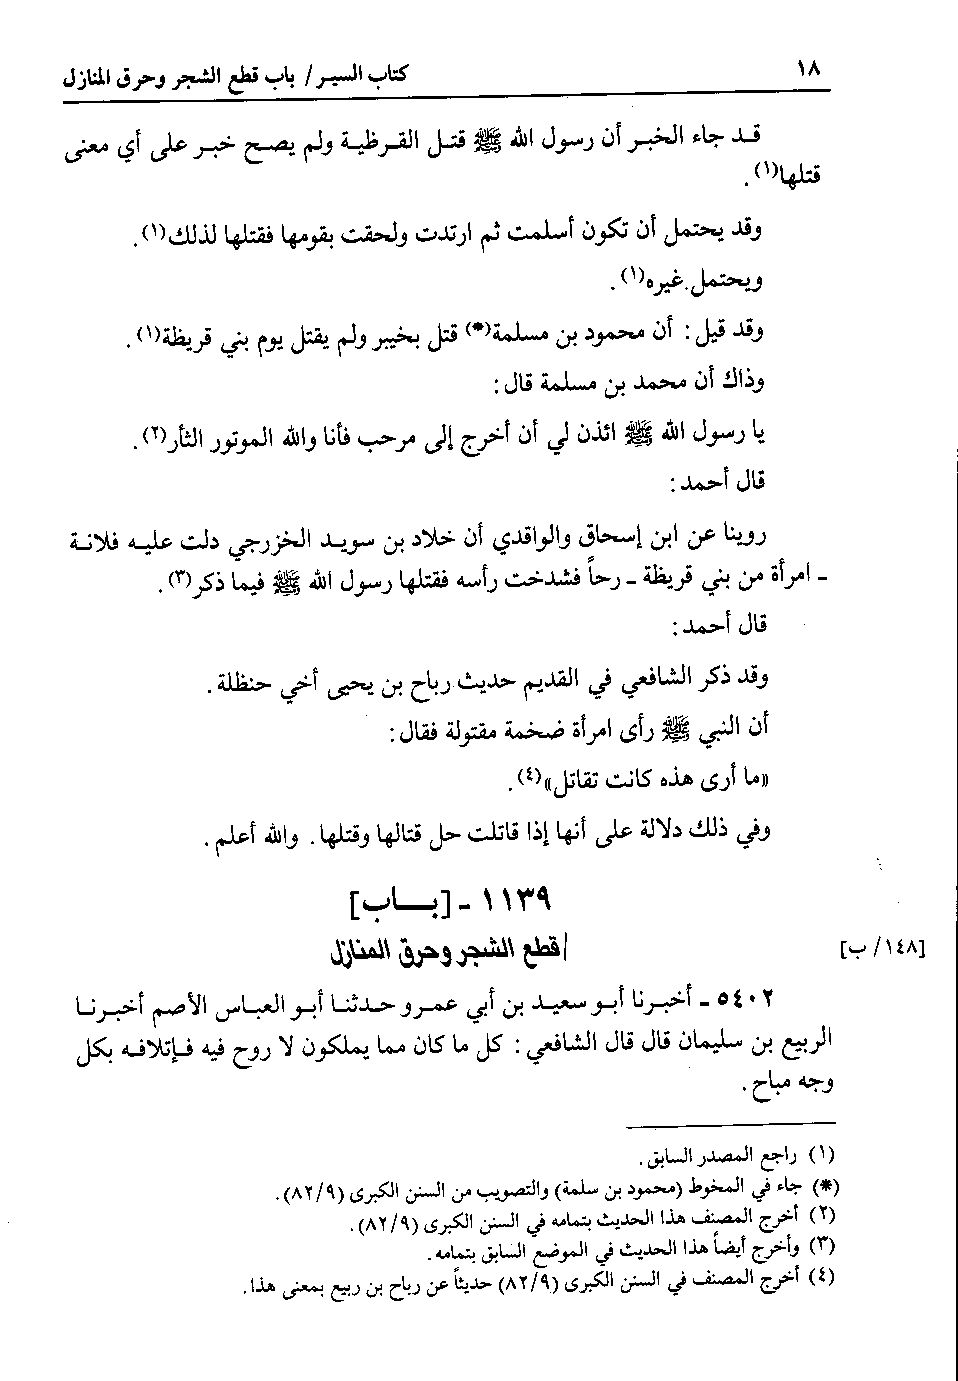 ١٨
كتاب السير/ باب قطع الشجر وحرق المنازل
قد جاء الخبر أن رسول الله ﷺ قتل القرظية ولم يصح خبر على أي معنى
قتلها(١).
وقد يحتمل أن تكون أسلمت ثم ارتدت ولحقت بقومها فقتلها لذلك(١).
ويحتمل غيره(١).
وقد قيل: أن محمود بن مسلمة(*) قتل بخيبر ولم يقتل يوم بني قريظة(١).
وذاك أن محمد بن مسلمة قال:
يا رسول الله ﷺ ائذن لي أن أخرج إلى مرحب فأنا والله الموتور الثأر(٢).
قال أحمد:
روينا عن ابن إسحاق والواقدي أن خلاد بن سويد الخزرجي دلت عليه فلانة
- امرأة من بني قريظة - رحاً فشدخت رأسه فقتلها رسول الله ﷺ فيما ذكر(٣).
قال أحمد:
وقد ذكر الشافعي في القديم حديث رباح بن يحيى أخي حنظلة.
أن النبي ﷺ رأى امرأة ضخمة مقتولة فقال:
«ما أرى هذه كانت تقاتل»(٤).
وفي ذلك دلالة على أنها إذا قاتلت حل قتالها وقتلها. والله أعلم.
١١٣٩ - [باب]
|قطع الشجر وحرق المنازل
[١٤٨/ ب]
٥٤٠٢ - أخبرنا أبو سعيد بن أبي عمرو حدثنا أبو العباس الأصم أخبرنا
الربيع بن سليمان قال قال الشافعي: كل ما كان مما يملكون لا روح فيه فإتلافه بكل
وجه مباح.
(١) راجع المصدر السابق.
(*) جاء في المخوط (محمود بن سلمة) والتصويب من السنن الكبرى (٨٢/٩).
(٢) أخرج المصنف هذا الحديث بتمامه في السنن الكبرى (٨٢/٩).
(٣) وأخرج أيضاً هذا الحديث في الموضع السابق بتمامه.
(٤) أخرج المصنف في السنن الكبرى (٨٢/٩) حديثاً عن رباح بن ربيع بمعنى هذا.